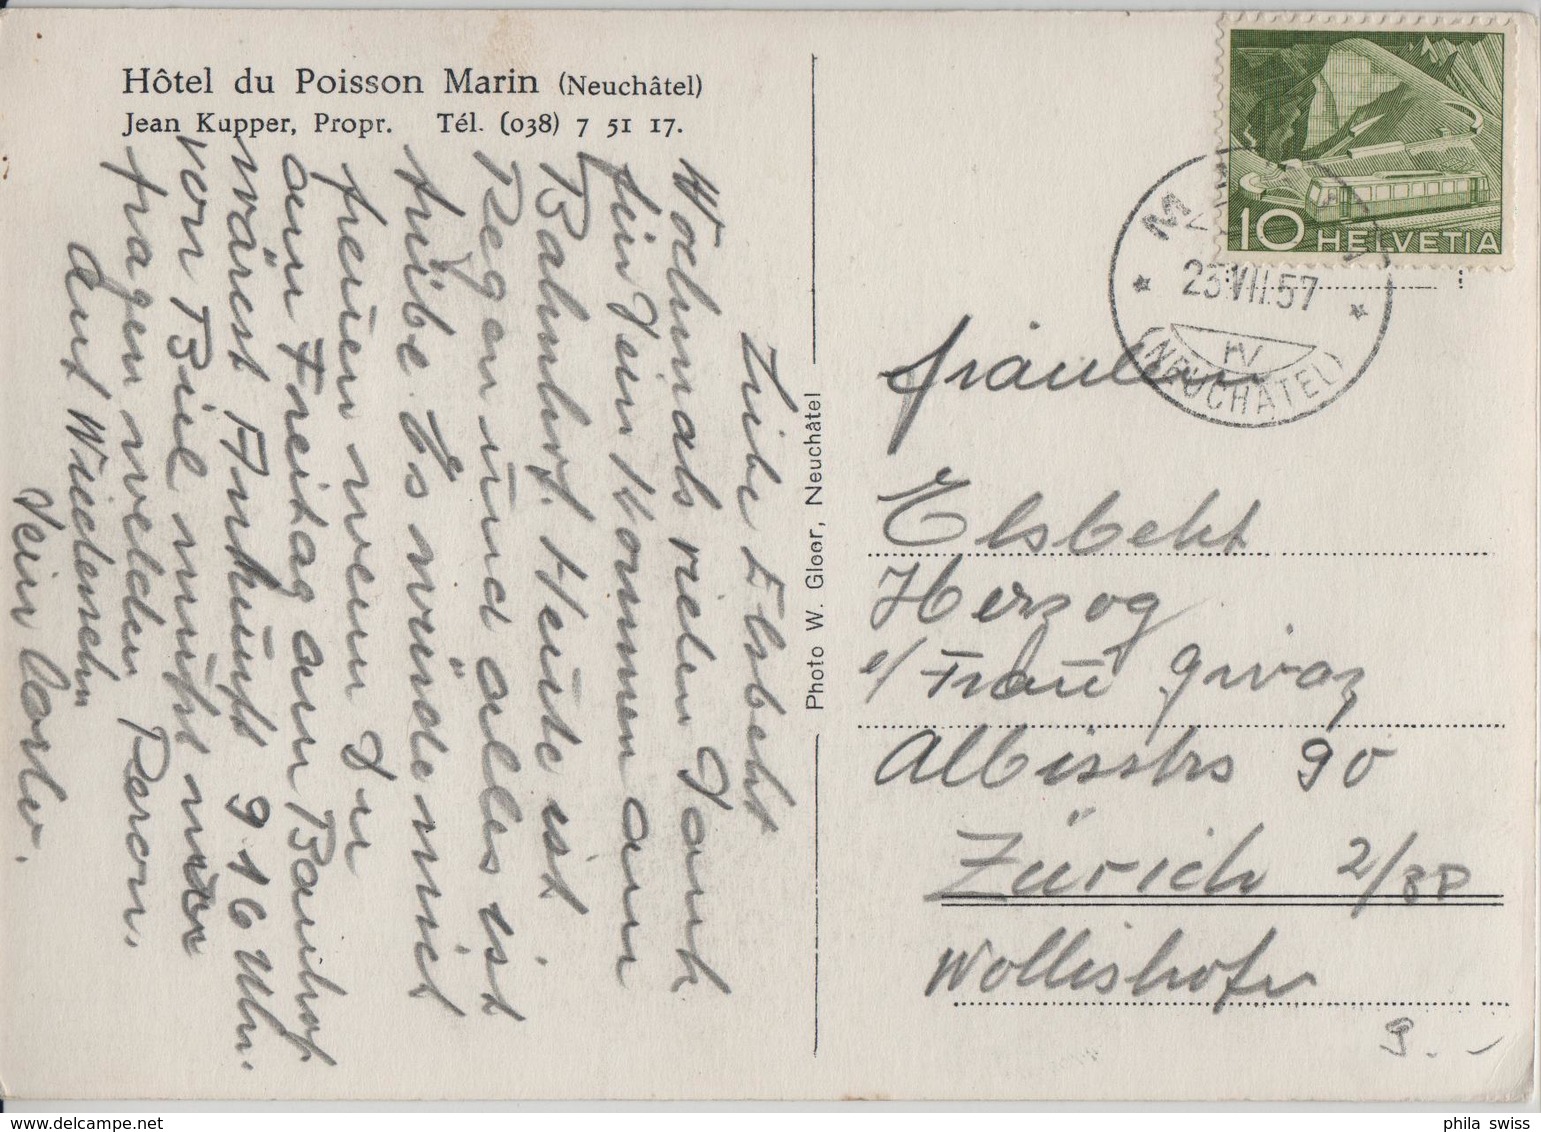 Hôtel du Poisson Marin (Neuchâtel)
Jean Kupper, Propr. Tél. (038) 7 51 17.
Liebe Elsbeht
Wochmals vielen Dank
für Dein Kommen am
Bahnhof. Heute ist
Regen und alles ist
trübe. Es würde mich
freuen wenn Du
am Freitag am Bahnhof
wärest Ankunft 9.16 Uhr.
von Biel müsst
fragen welchen Perron.
Auf Wiedersehn
Dein Carlo.
Photo W. Gloor, Neuchâtel
10 HELVETIA
23.VII.57
(NEUCHÂTEL)
Fräulein
Elsbeht
Herzog
c/ Frau Givaz
Albisstrs 90
Zürich 2/38
Wollishofen
9.-
phila swiss